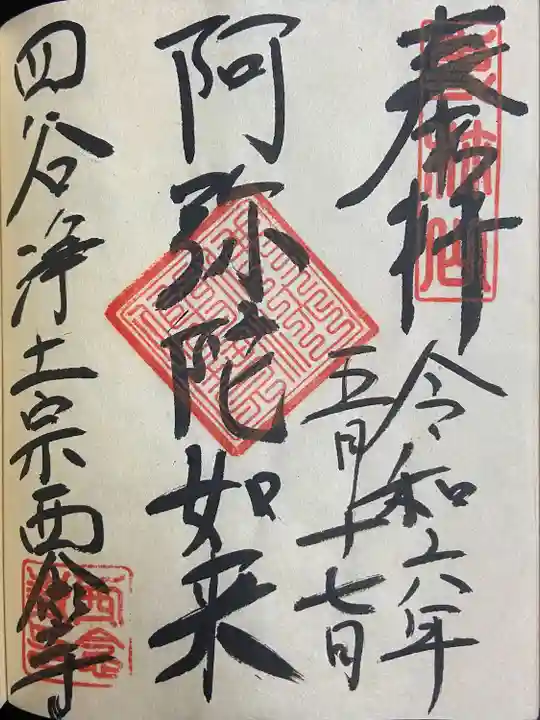 奉拝
令和六年
五月十七日
阿弥陀如来
四谷浄土宗西念寺